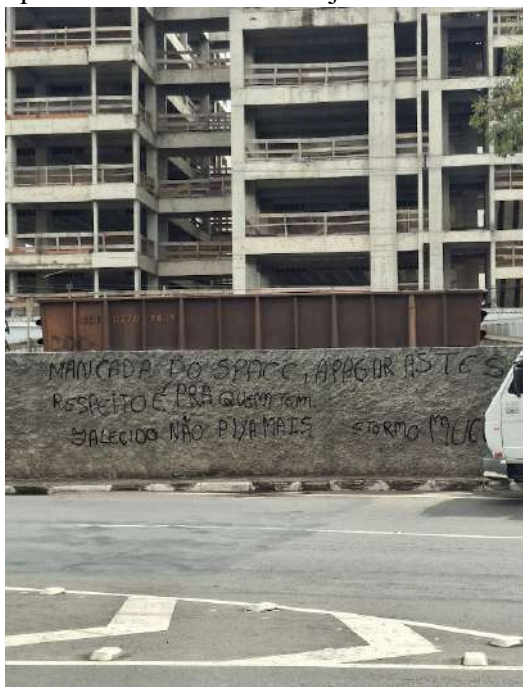 MANCADA DO SPACE, APAGAR AS TES
RESPEITO É PRA QUEM TEM.
FALECIDO NÃO PIXA MAIS ETERNO MUC